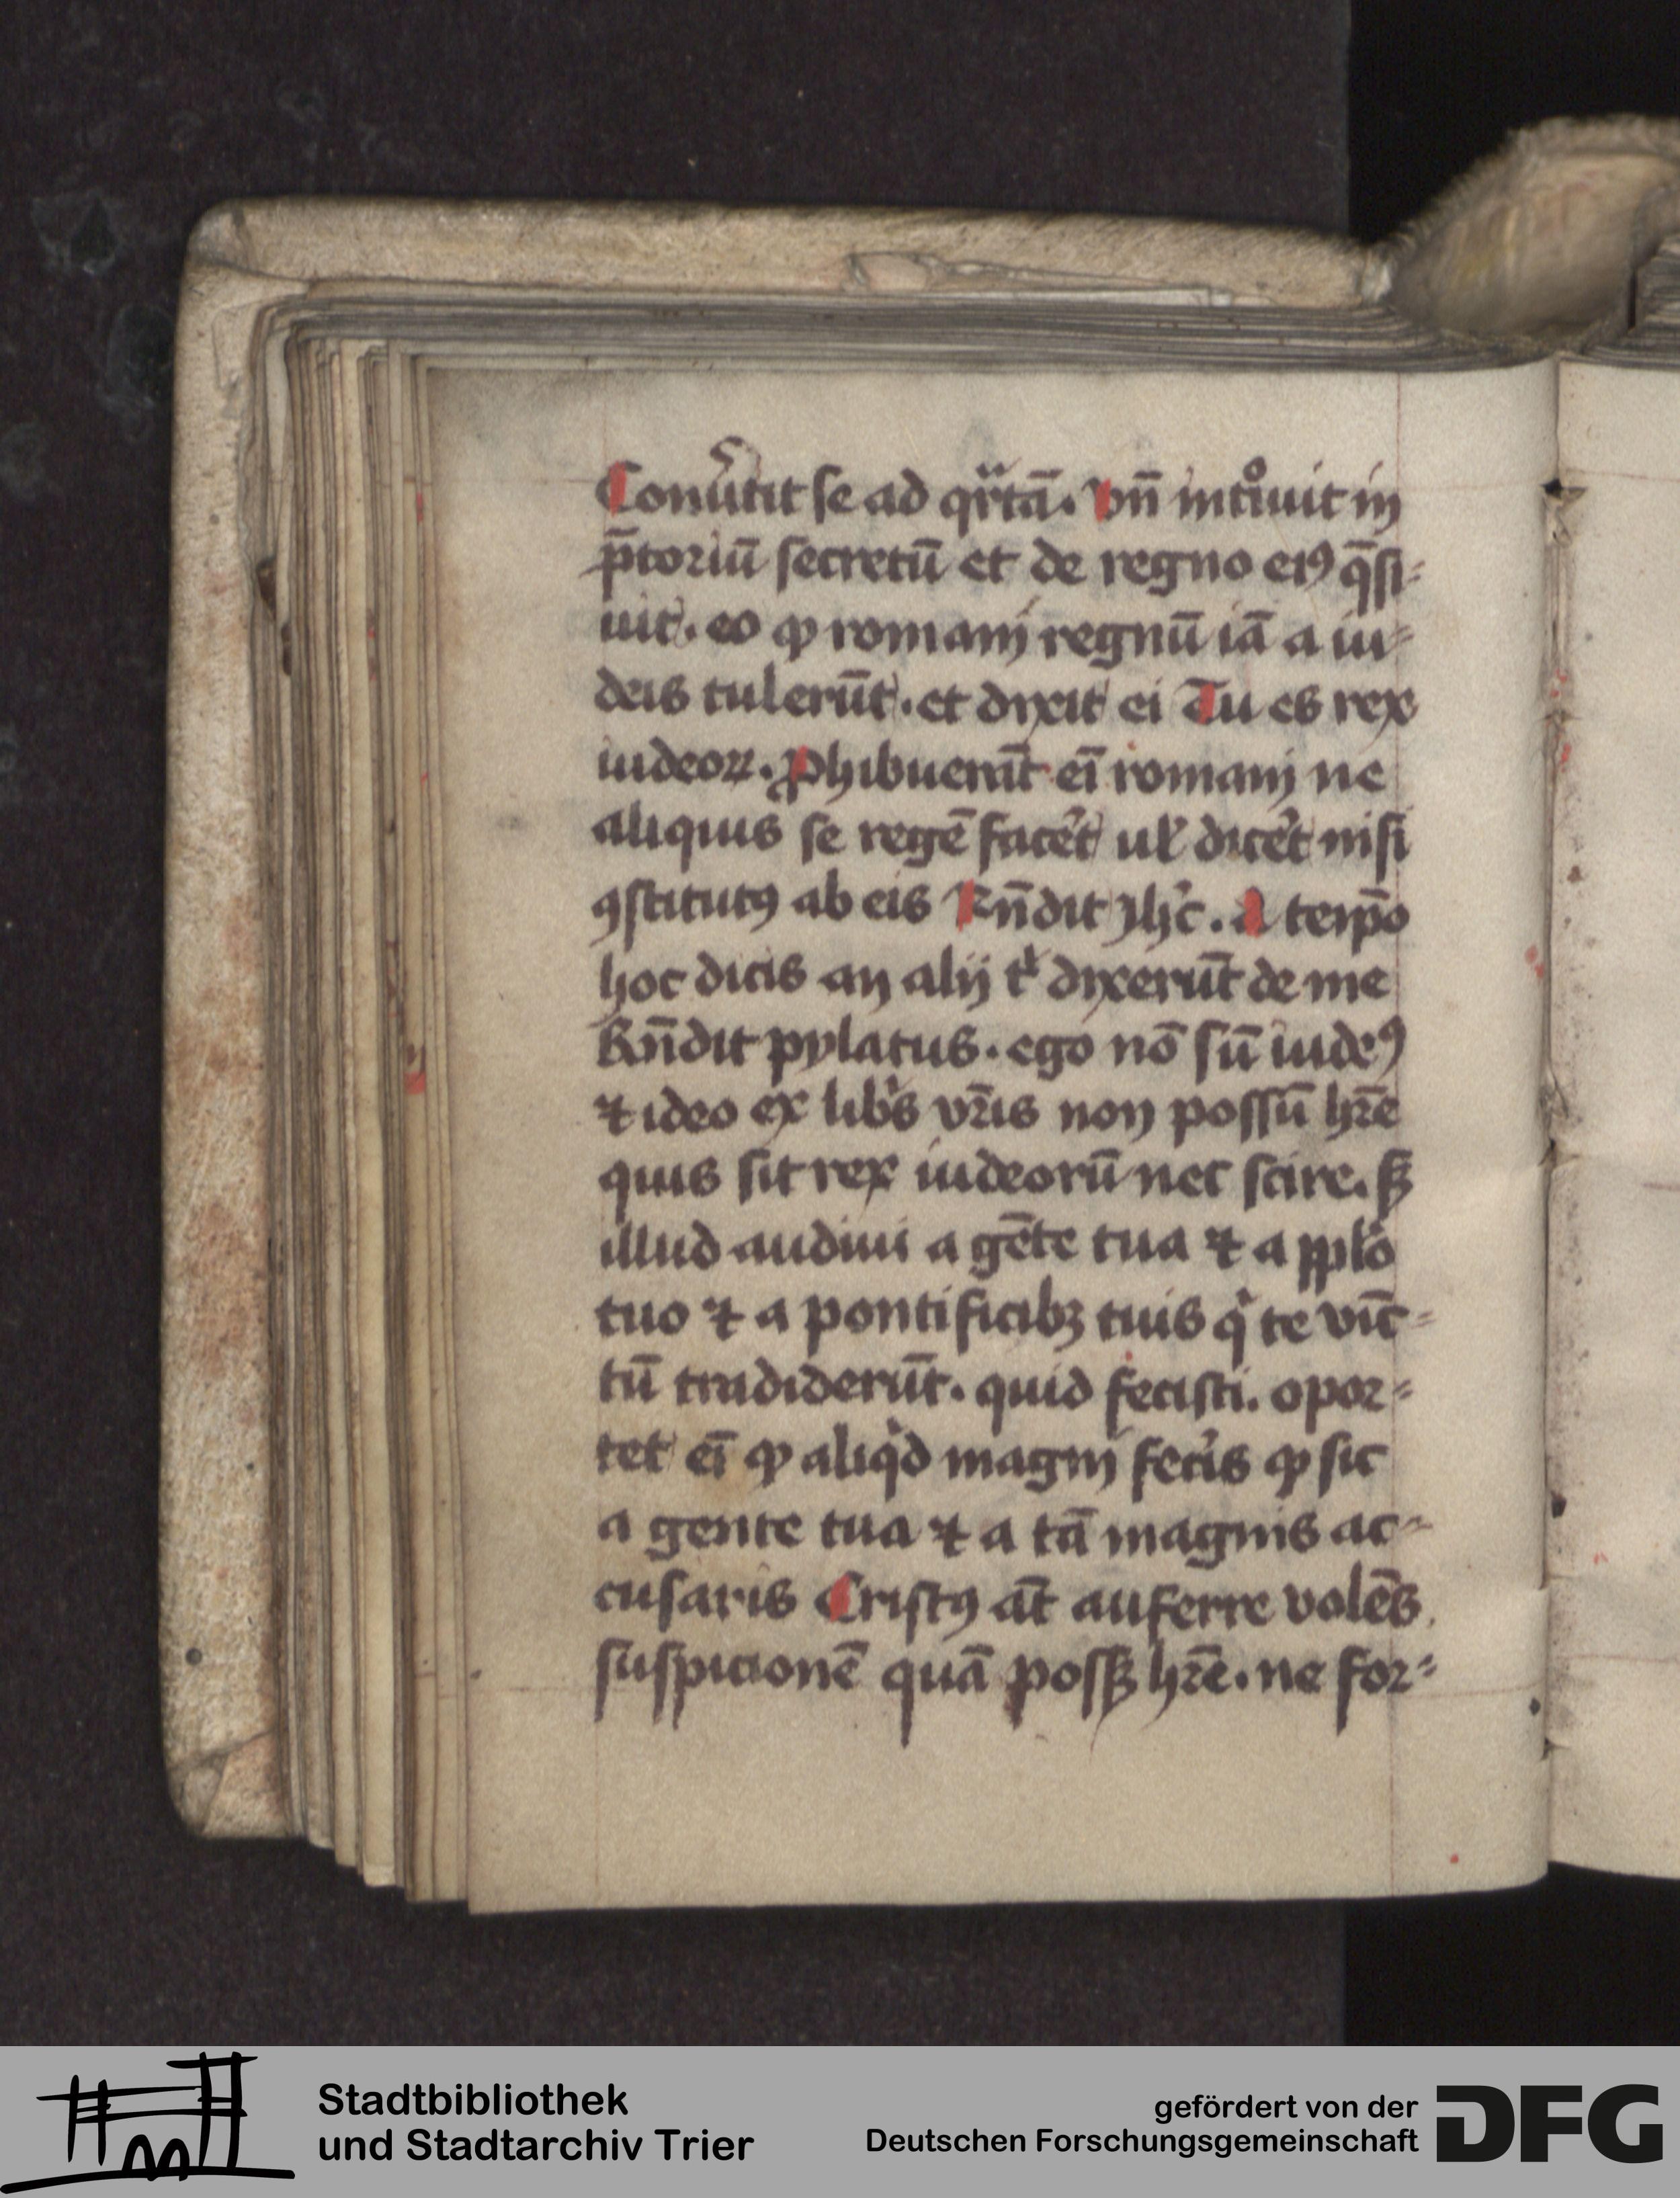 Conu͛tit se ad qrͣtā. vn̄ intͦiuit in
p̄toriū secretū et de regno eiꝰ q̄si⸗
uit. eo ꝙ romani regnū iā a iu⸗
deis tulerūt. et dixit ei Tu es rex
iudeoꝝ. Ꝓhibuerūt eī romani ne
aliquis se regē facet͛ ul̛ dicet͛ nisi
ꝯstitutꝰ ab eis Rn̄dit Jhc̛. A teip̄o
hoc dicis an alij tͥ dixerūt de me
Rn̄dit pylatus. ego nō sū iudeꝰ
⁊ ideo ex libͥs vr̄is non possū hr̄e
quis sit rex iudeorū nec scire. sꝫ
illud audiui a gēte tua ⁊ a pplơ
tuo ⁊ a pontificibꝫ tuis qͥ te vīc⸗
tū tradiderūt. quid fecisti. opor⸗
tet eī ꝙ aliqͥd magni fec͛is ꝙ sic
a gente tua ⁊ a tā magnis ac⸗
cusaris Cristꝰ āt auferre volēs
suspicionē quā possꝫ hr̄e. ne for⸗
Stadtbibliothek
und Stadtarchiv Trier
gefördert von der
Deutschen Forschungsgemeinschaft
DFG